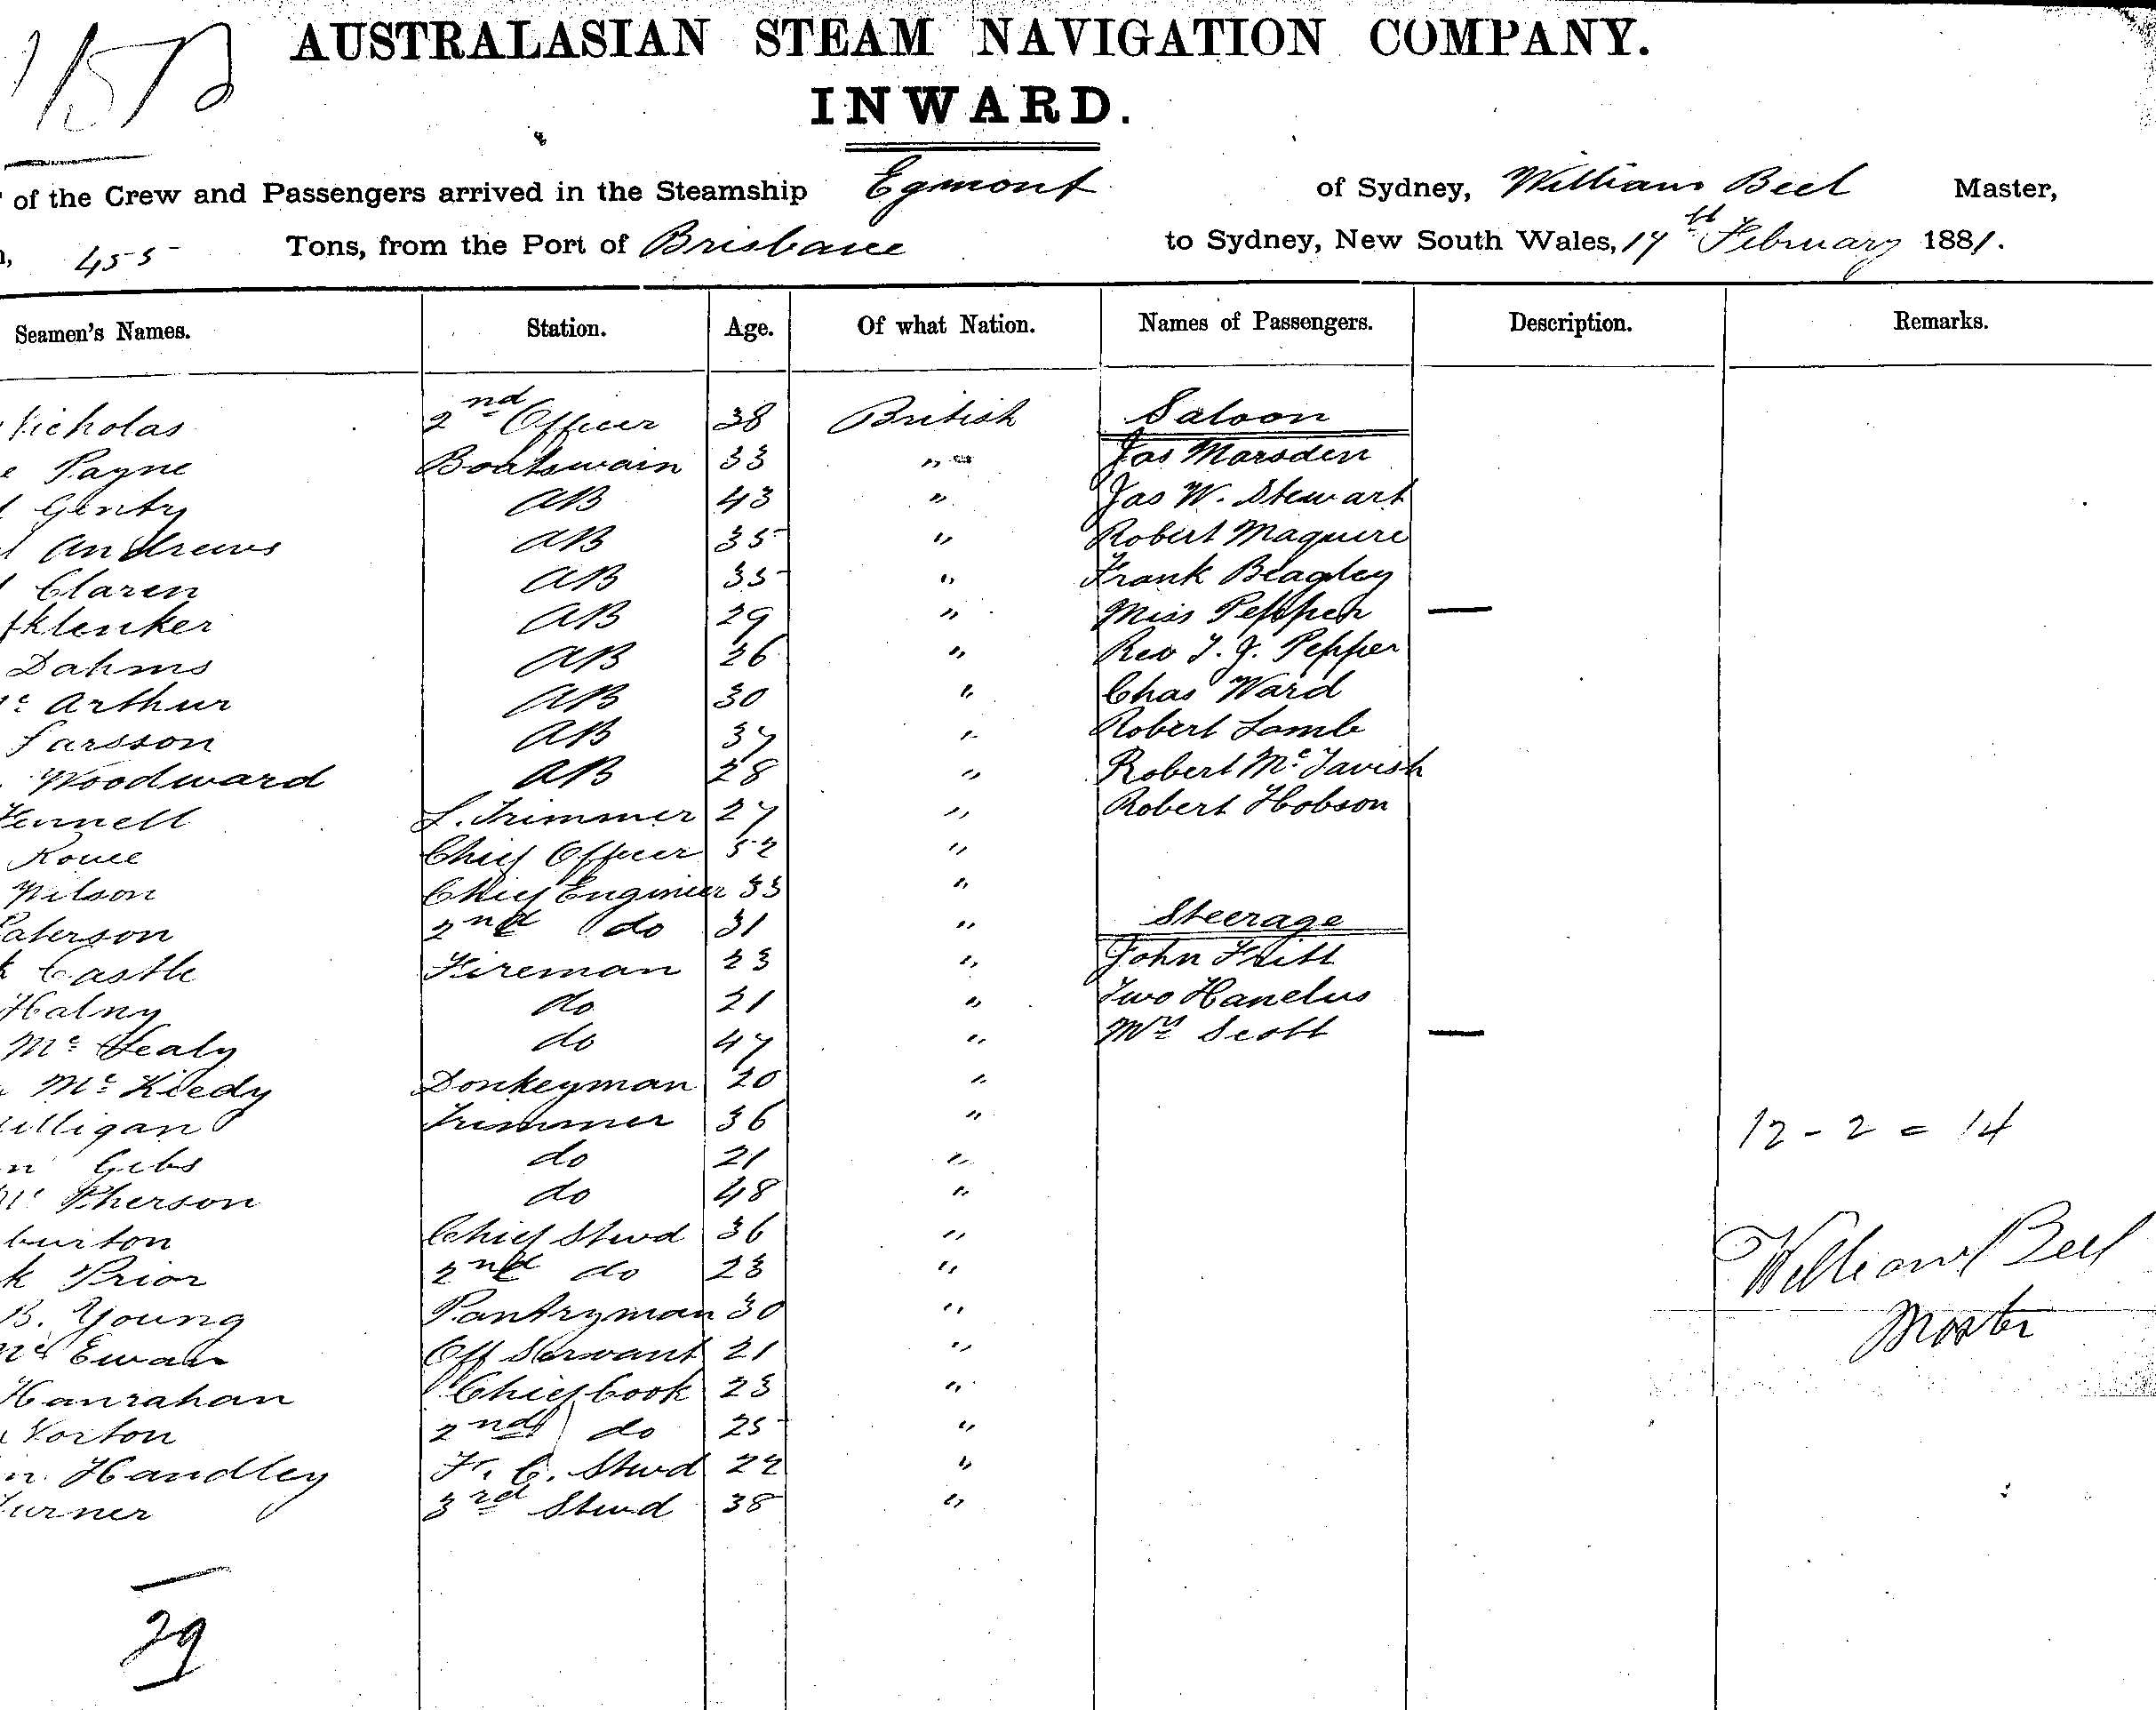 AUSTRALASIAN STEAM NAVIGATION COMPANY.
INWARD.
of the Crew and Passengers arrived in the Steamship Egmont of Sydney, William Beel Master,
455 Tons, from the Port of Brisbane to Sydney, New South Wales, 17th February 1881.
Seamen's Names. Station. Age. Of what Nation. Names of Passengers. Description. Remarks.
Nicholas 2nd Officer 38 British Saloon
Payne Boatswain 33 " Jas Marsden
Genty AB 43 " Jas W. Stewart
Andrews AB 35 " Robert Maguire
Claren AB 35 " Frank Beagley
klenker AB 29 " Miss Pepper —
Dahms AB 26 " Rev J. J. Pepper
Mc Arthur AB 30 " Chas Ward
Larsson AB 37 " Robert Lamb
Woodward AB 28 " Robert Mc Tavish
Fennell L. Trimmer 27 " Robert Hobson
Chief Officer 52 "
Wilson Chief Engineer 33 "
Paterson 2nd do 31 " Steerage
Castle Fireman 23 " John Fritt
Halny do 21 " Two Hanelus
Mc Healy do 47 " Mrs Scott —
Mc Kiedy Donkeyman 20 "
illigan Trimmer 36 " 12 - 2 = 14
Gibs do 21 "
Mc Pherson do 48 "
burton Chief Stwd 36 " William Beel
k Prior 2nd do 23 "
B. Young Pantryman 30 " Master
Mc Ewan Off Servant 21 "
Hanrahan Chief Cook 23 "
Norton 2nd do 25 "
Handley Fr. C. Stwd 22 "
Turner 3rd Stwd 38 "
29